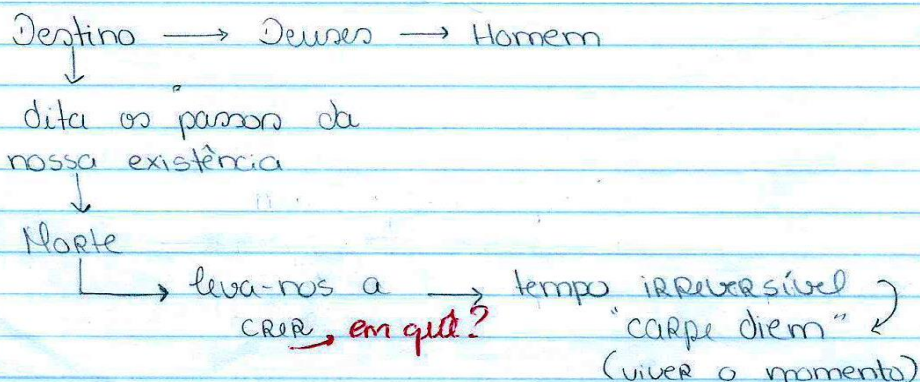 Destino → Deuses → Homem
↓
dita os passos da
nossa existência
↓
Morte
↳ leva-nos a → tempo irreversível
crer → em quê? "carpe diem"
(viver o momento)